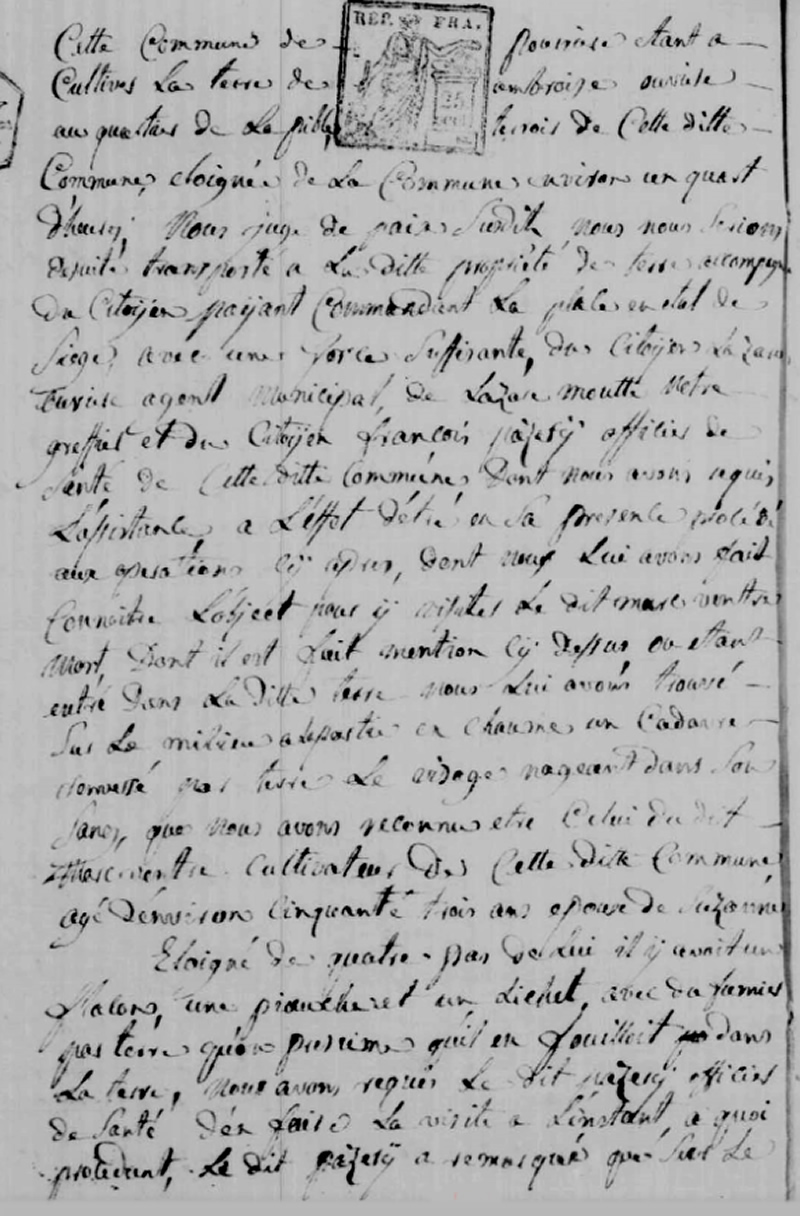 Cette Commune de REP. FRA. etant a
Cultiver La terre de ambroise
au quartier de La 25 terroir de Cette ditte
Commune, eloignée de La Commune environ un quart
d'heure, Nous juge de paix Susdit nous nous Serions
de suite transporté a La ditte propriété de terre accompagné
du Citoyen payant Commandant La place en etat de
Siege, avec une force Suffisante, du Citoyen Lazare
agent Municipal, de Lazare moutte Notre
greffier et du Citoyen françois pazery officier de
Santé de Cette ditte Commune dont nous avons requis
L'assistance, a L'effet d'etre en Sa presence procédé
aux operations cy apres, dont nous Lui avons fait
Connoitre L'object pour y visiter Le dit marc ventre
mort dont il est fait mention cy dessus ou etant
entré dans La ditte terre nous Lui avons trouvé
Sur Le milieu en chaume un Cadavre
par terre Le visage nageant dans Son
Sang, que nous avons reconnu etre Celui du dit
Marc ventre Cultivateur de Cette ditte Commune
agé d'environ Cinquante trois ans epoux de Suzanne
Eloigné de quatre pas de Lui il y avoit un
flacon, une pioche et un Lichet, avec du fumier
par terre qu'on presume qu'il en fouilloit dans
La terre, nous avons requis Le dit pazery officier
de Santé d'en faire La visite a L'instant, a quoi
procedant, Le dit pazery a remarqué que Sur Le